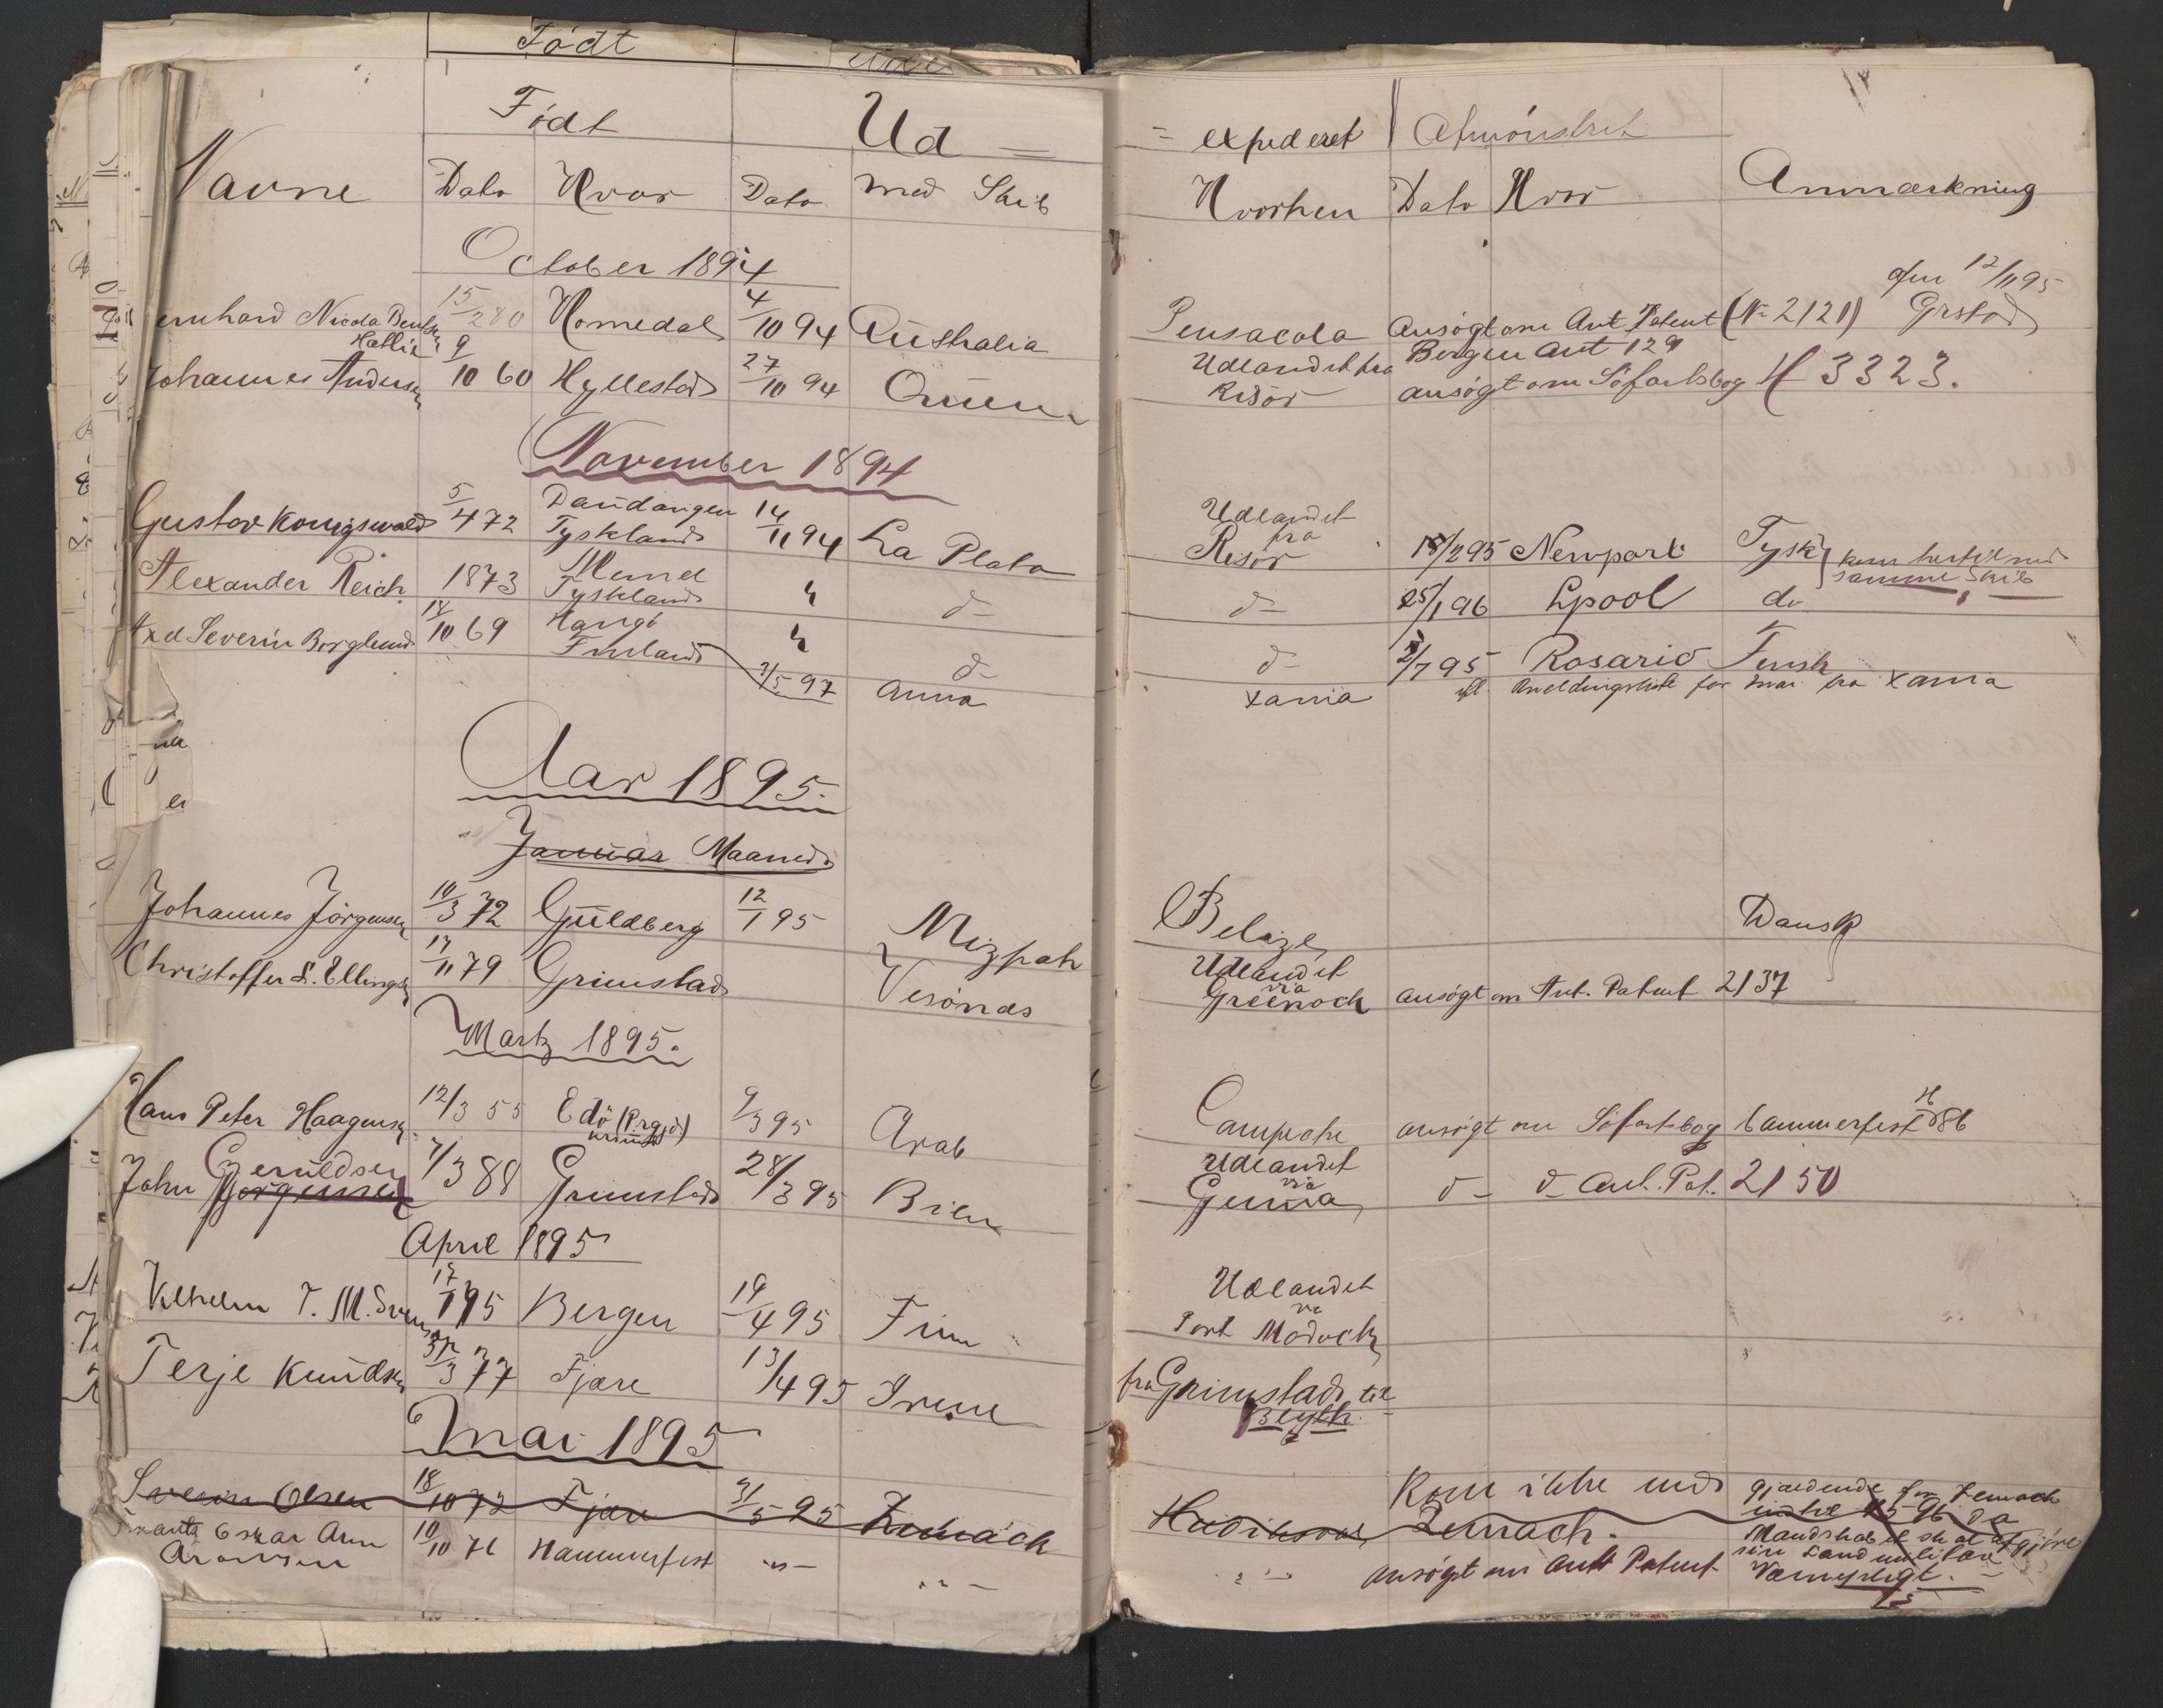 Født
Født Ud = = expederet Afmønstret
Navne Dato Hvor Dato med Skib Hvorhen Dato Hvor Anmærkning
October 1894
12/11 95
ernhard Nicolai 15/2 80 Homedal 4/10 94 Australia Pensacola Ansøgt om Aut Patent (No 2121) Grstad
Johannes Andersen 9/10 60 Hyllestad 27/10 94 Udlandet fra Risør Bergen Aut 129 ansøgt om Søfartsbog H 3323.
November 1894
Gustav Konigswald 5/4 72 Tyskland 14/11 94 La Plata Udlandet fra Risør 18/2 95 Newport Tysk samme Skib
Alexander Reich 1873 Memel Tyskland " d- d- 25/1 96 Lpool do
Axel Severin Borglund 14/10 69 Hangö Finland " d- d- 2/7 95 Rosario Finsk
7/5 97 Anna Xania Anmeldingsliste for Mai fra Xania
Aar 1895.
Januar Maaned
Johannes Jörgensen 10/3 72 Guldberg 12/1 95 Mizpah Belize Dansk
Christoffer S. Ellingsen 17/11 79 Grimstad Vesönæs Udlandet via Greenock ansøgt om Aut. Patent 2137
Martz 1895.
Hans Peter Haagensen 12/3 55 Edö (Prgjd.) 9/3 95 Arab Campeche ansøgt om Søfartsbog Hammerfest 86
John Jörgensen Geruldsen 7/3 88 Grimstad 28/3 95 Bien Udlandet via Genua d- d- Aut. Pat. 2150
April 1895
Vilhelm T. M. 17/1 95 Bergen 19/4 95 Finn Udlandet via Port Madock
Terje Knudsen 31/3 77 Fjære 13/4 95 Irene fra Grimstad til Blyth.
Mai 1895
Severin Olsen 18/10 72 Fjære 3/5 95 Zemach Hudiksval Kom ikke med Zemach. gjældende for Zemach indtil 1/5 96 da Mandskabet skal afgjøre sin Land militære Værnepligt.
Oskar Arn Aronsen 10/10 76 Hammerfest -"- -"- -"- ansøgt om Autt Patent